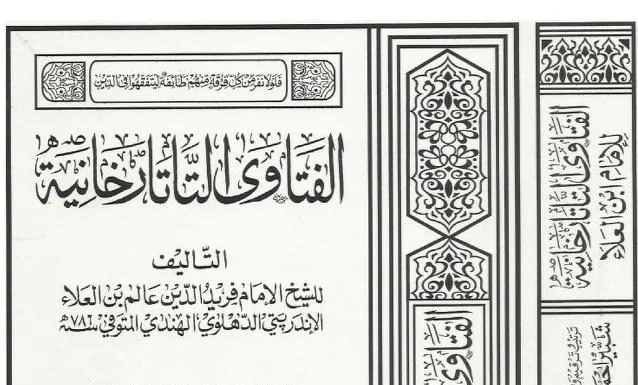 فلولا نفر من كل فرقة منهم طائفة ليتفقهوا في الدين
الفتاوى التاتارخانية
التأليف
للشيخ الإمام فريد الدين عالم بن العلاء
الإندرپتي الدهلوي الهندي المتوفى سنة ٧٨٦ھ
الفتاوى
الفتاوى التاتارخانية
للإمام ابن العلاء
شبير